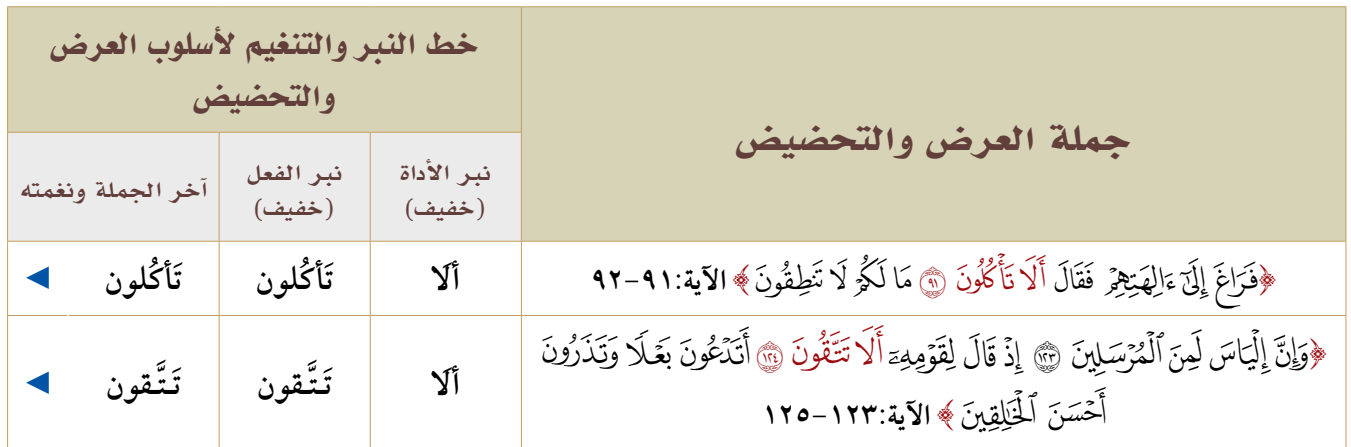 جملة العرض والتحضيض
خط النبر والتنغيم لأسلوب العرض
والتحضيض
نبر الأداة
(خفيف)
نبر الفعل
(خفيف)
آخر الجملة ونغمته
﴿فَرَاغَ إِلَىٰٓ ءَالِهَتِهِمۡ فَقَالَ أَلَا تَأۡكُلُونَ ٩١ مَا لَكُمۡ لَا تَنطِقُونَ﴾ الآية:٩١-٩٢
ألا
تَأكُلون
تَأكُلون ◄
﴿وَإِنَّ إِلۡيَاسَ لَمِنَ ٱلۡمُرۡسَلِينَ ١٢٣ إِذۡ قَالَ لِقَوۡمِهِۦٓ أَلَا تَتَّقُونَ ١٢٤ أَتَدۡعُونَ بَعۡلٗا وَتَذَرُونَ
أَحۡسَنَ ٱلۡخَٰلِقِينَ﴾ الآية:١٢٣-١٢٥
ألا
تَتَّقون
تَتَّقون ◄